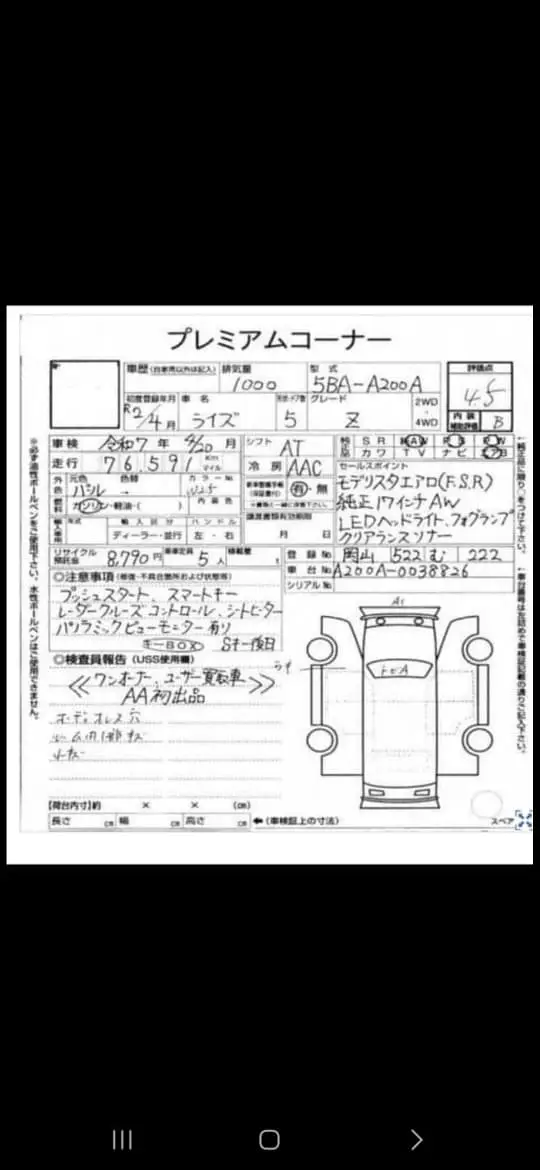 プレミアムコーナー
車歴 (自家用以外は記入) 排気量 型式 評価点
1000 5BA-A200A 4.5
初度登録年月 車名 形状・ドア数 グレード 2WD・4WD 内装補助評価 B
R2/4月 ライズ 5 Z
車検 令和7年 4/20月 シフト AT 純正品 SR AW PS PW
走行 76,591 Km マイル 冷房 AAC カワ TV ナビ エアB
外色 元色 色替 カラーNo. セールスポイント
パール → 有・無 モデリスタエアロ(F.S.R)
燃料 ガソリン・軽油・( ) 内装色 純正17インチAW
年式 輸入区分 ハンドル 譲渡書類有効期限 LEDヘッドライト、フォグランプ
ディーラー・並行 左・右 月 日 クリアランスソナー
リサイクル預託金 8,790円 乗車定員 5人 積載量 t 登録No 岡山 522 む 222
◎注意事項(修復・不具合箇所および状態等) 車台No A200A-0038826
シリアルNo
プッシュスタート、スマートキー
レーダークルーズコントロール、シートヒーター
パノラミックビューモニター有り
キーBOX Sキー後日
◎検査員報告 (USS使用欄)
≪ワンオーナー、ユーザー買取車≫
AA初出品
A1
トビA
【荷台内寸】約 × × (cm)
長さ cm 幅 cm 高さ cm ←(車検証上の寸法) スペア
※必ず油性ボールペンをご使用下さい。水性ボールペンはご使用できません。
↑純正品に限り○をつけて下さい。
↑車台番号は左詰めで車検証記載の通りご記入下さい。